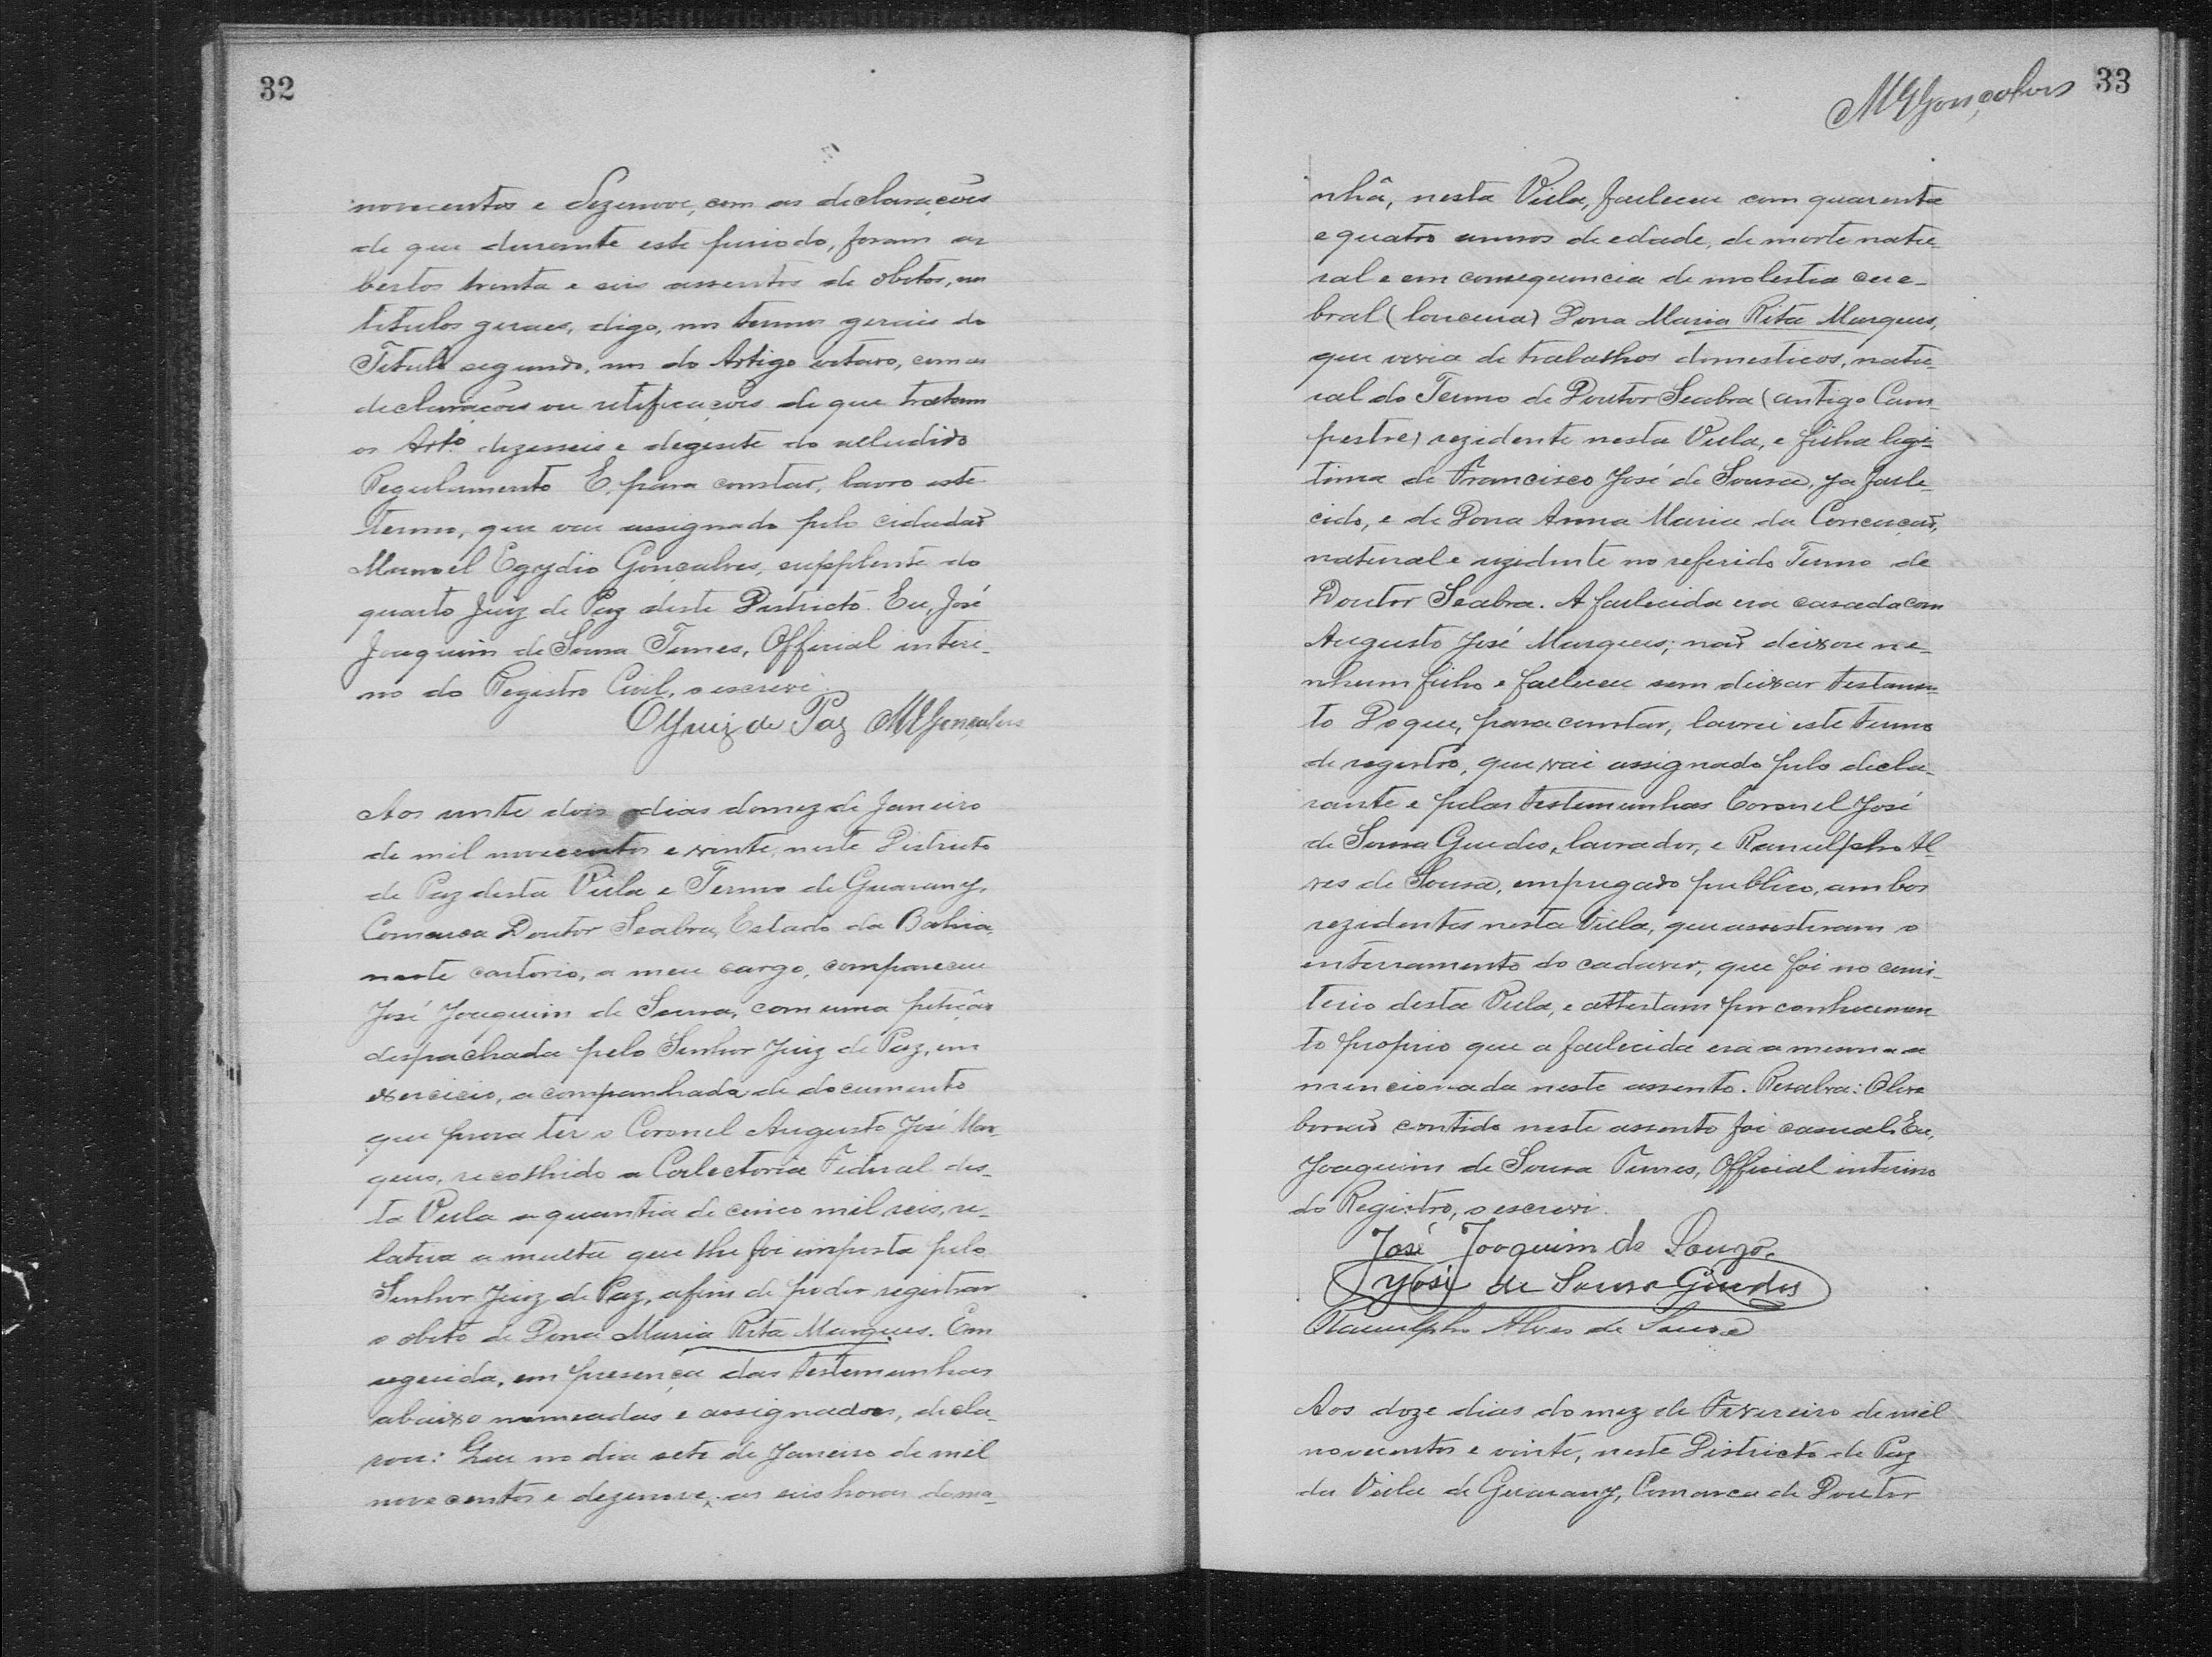 32
novecentos e dezenove, com as declarações
de que durante este periodo, foram a
bertos trinta e seis assentos de obitos, nos
titulos geraes, digo, nos termos gerais do
Titulo segundo, nos do Artigo oitavo, com as
declarações ou retificações de que tratam
os Artº dezesseis e dezesete do alludido
Regulamento E, para constar, lavro este
termo, que vae assignado pelo cidadaõ
Manoel Egydio Gonçalves, supplente do
quarto Juiz de Paz deste Districto. Eu, José
Joaquim de Sousa Tunes, Official interi-
no do Registro Civil, o escrevi
O Juiz de Paz MEGonçalves
Aos vinte dois dias do mez de Janeiro
de mil novecentos e vinte, neste Districto
de Paz desta Villa e Termo de Guarany,
Comarca Doutor Seabra, Estado da Bahia,
neste cartorio, a meu cargo, compareceu
José Joaquim de Sousa, com uma petição
despachada pelo Senhor Juiz de Paz, em
exercicio, acompanhada de documento
que prova ter o Coronel Augusto José Mar-
ques, recolhido a Collectoria Federal des-
ta Villa a quantia de cinco mil reis, re-
lativa a multa que lhe foi imposta pelo
Senhor Juiz de Paz, afim de poder registrar
o obito de Dona Maria Rita Marques. Em
seguida, em presença das testemunhas
abaixo nomeadas e assignados, decla-
rou: Que no dia sete de Janeiro de mil
novecentos e dezenove, as seis horas da ma-
MEGonçalves 33
nhã, nesta Villa, falleceu com quarenta
e quatro annos de edade, de morte natu-
ral e em consequencia de molestia cere-
bral (loucura) Dona Maria Rita Marques,
que vivia de trabalhos domesticos, natu-
ral do Termo de Doutor Seabra (antigo Cam-
pestre) rezidente nesta Villa, e filha legi-
tima de Francisco José de Sousa, ja falle-
cido, e de Dona Anna Maria da Conceiçaõ,
natural e rezidente no referido Termo de
Doutor Seabra. A fallecida era casada com
Augusto José Marques; naõ deixou ne-
nhum filho e falleceu sem deixar testamen-
to Do que, para constar, lavrei este termo
de registro, que vai assignado pelo decla-
rante e pelas testemunhas Coronel José
de Sousa Guedes, lavrador, e Ranulpho Al-
ves de Sousa, empregado publico, ambos
rezidentes nesta Villa, que assistiram o
enterramento do cadaver, que foi no cemi-
terio desta Villa, e attestam por conhecimen-
to proprio que a fallecida era a mesma a
mencionada neste assento. Resalva: O leve
borraõ contido neste assento foi casual. Eu,
Joaquim de Sousa Tunes, Official interino
do Registro, o escrevi.
José Joaquim de Souza.
José de Sousa Guedes
Ranulpho Alves de Sousa
Aos doze dias do mez de Fevereiro de mil
novecentos e vinte, neste Districto de Paz
da Villa de Guarany, Comarca de Doutor